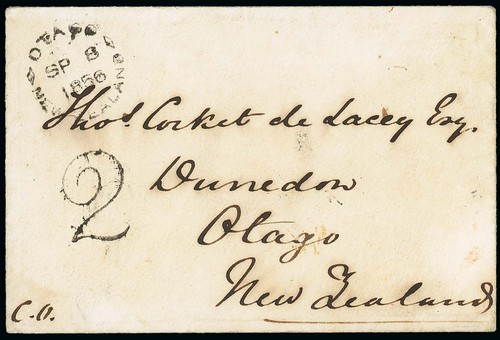 OTAGO
NEW ZEALAND
SP 8
1856
Thos. Cocket de Lacey Esq.
Dunedon
2
Otago
New Zealand